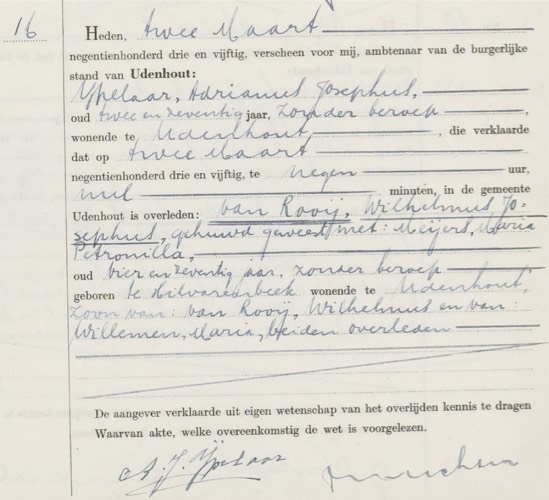 16
Heden, twee Maart
negentienhonderd drie en vijftig, verscheen voor mij, ambtenaar van de burgerlijke
stand van Udenhout:
Ypelaar, Adrianus Josephus,
oud twee en zeventig jaar, zonder beroep,
wonende te Udenhout, die verklaarde
dat op twee Maart
negentienhonderd drie en vijftig, te negen uur,
nul minuten, in de gemeente
Udenhout is overleden: van Rooij, Wilhelmus Jo-
sephus, gehuwd geweest met: Meijers, Maria
Petronilla,
oud vier en zeventig jaar, zonder beroep
geboren te Hilvarenbeek wonende te Udenhout,
zoon van: van Rooij, Wilhelmus en van:
Willemen, Maria, beiden overleden
De aangever verklaarde uit eigen wetenschap van het overlijden kennis te dragen
Waarvan akte, welke overeenkomstig de wet is voorgelezen.
A. J. Ypelaar